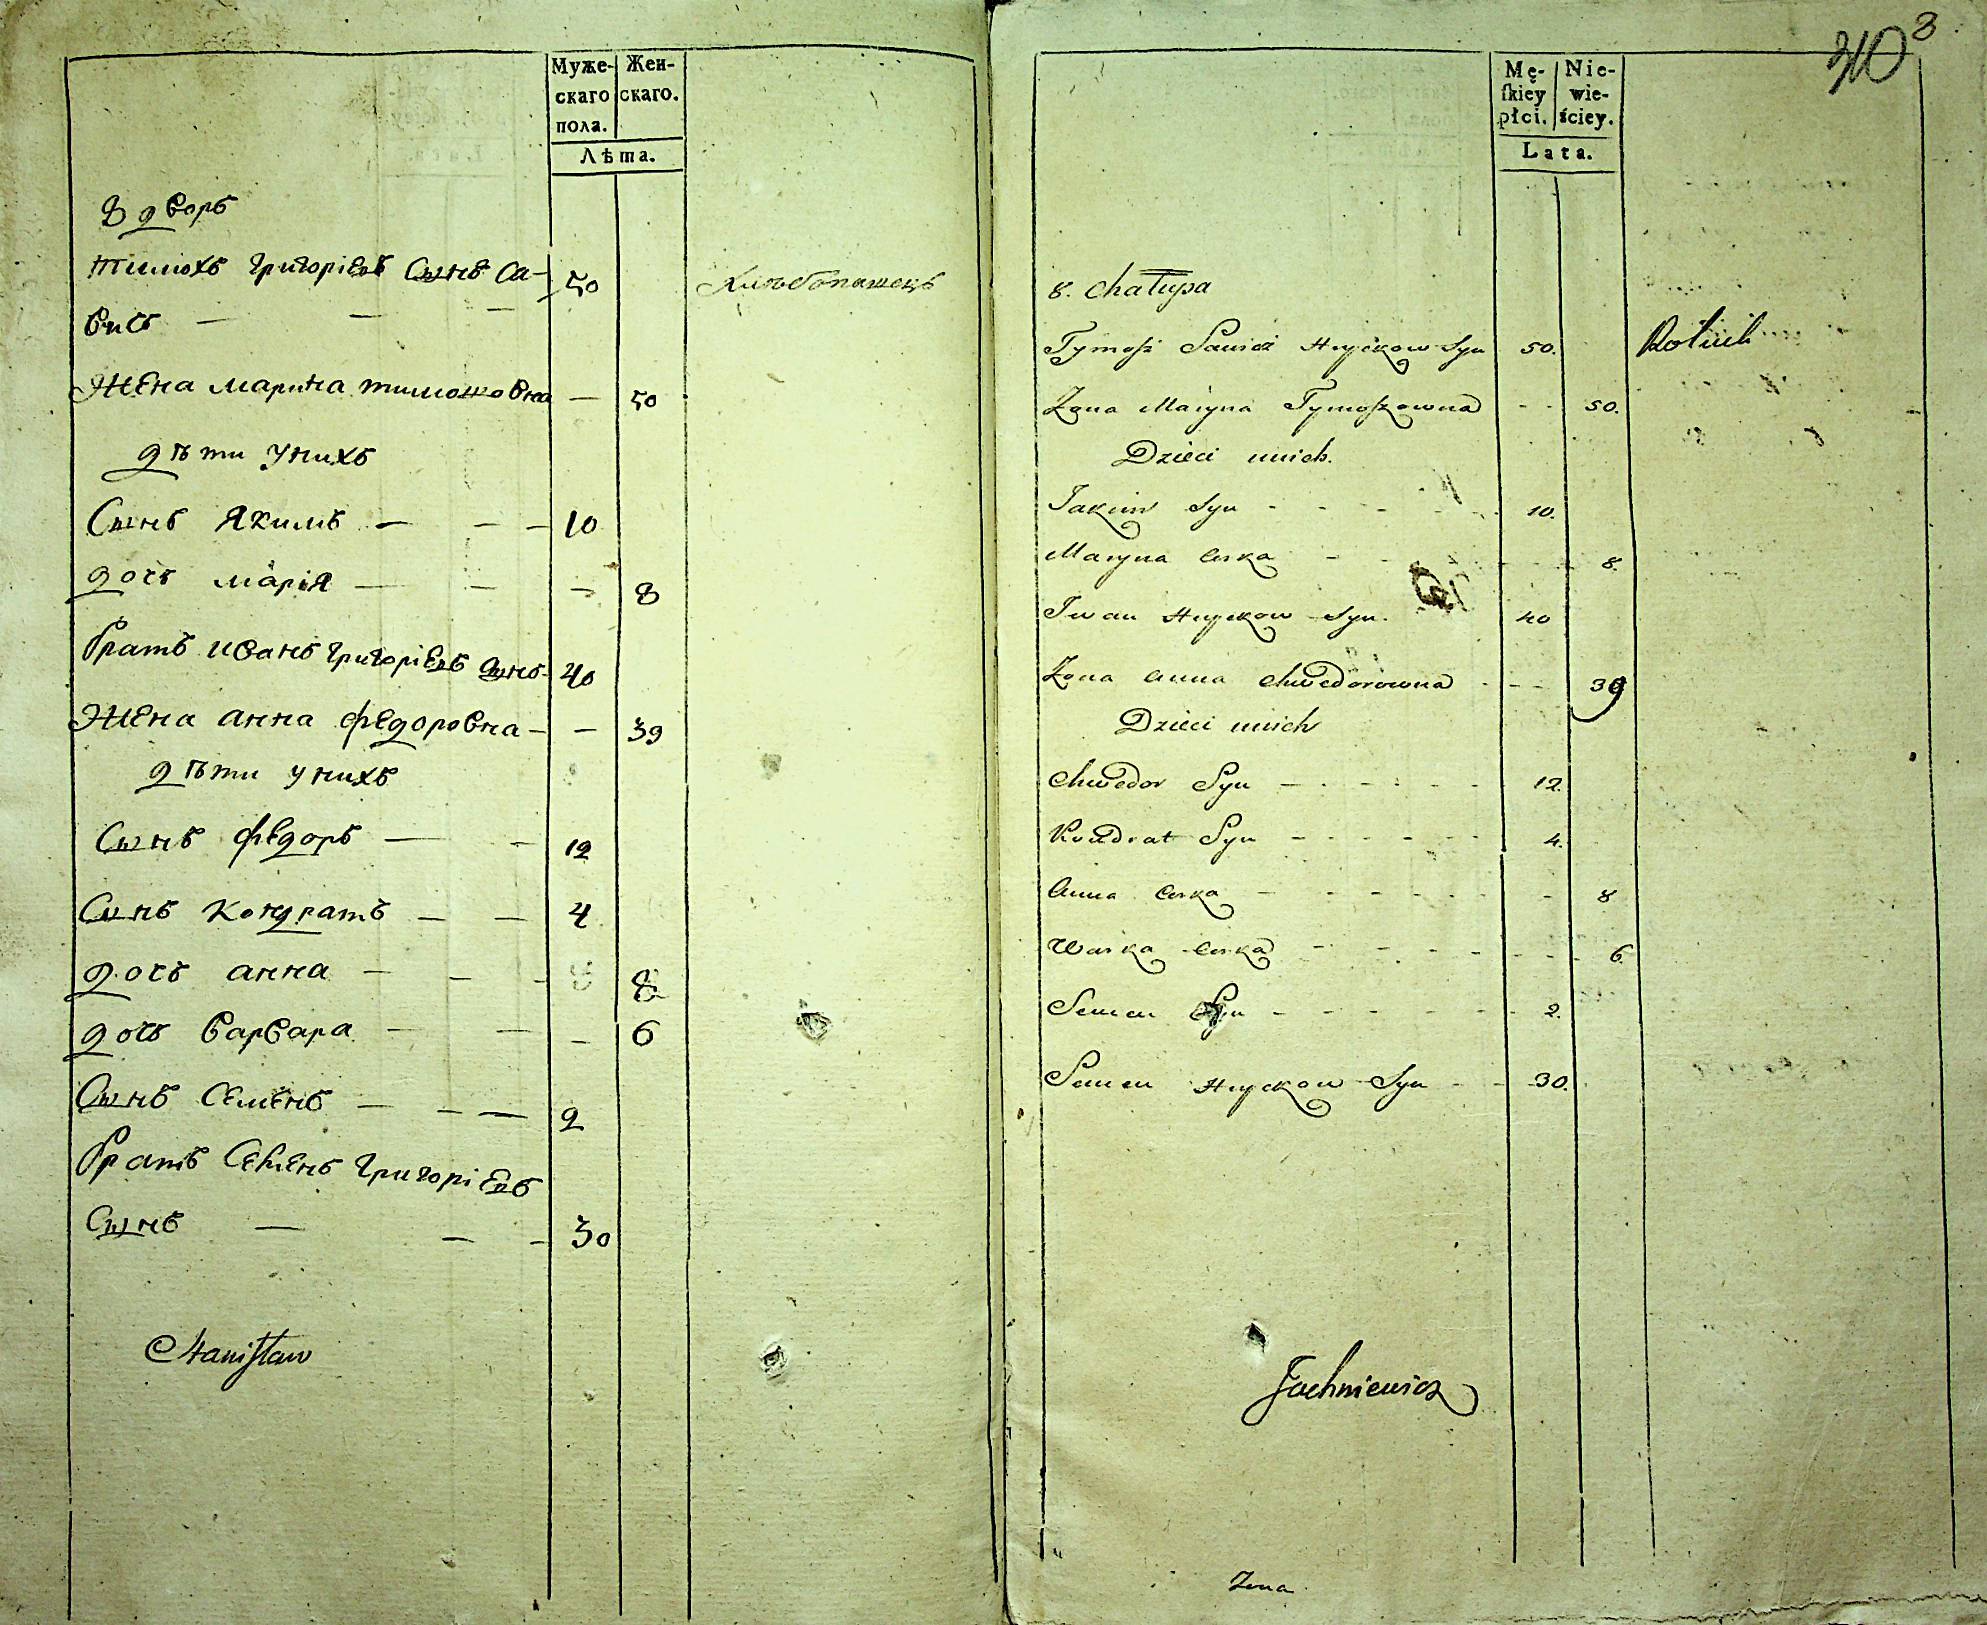 Муже-
скаго
пола.
Жен-
скаго.
Лѣта.
8 дворъ
Тимохъ Григоріевъ Сынъ Са- 50 Хлѣбопашецъ
вичъ — — —
Жена Марина Тимоховна — 50
дѣти у нихъ
Сынъ Якимъ — — — 10
дочь Марія — — — 8
братъ Иванъ Григоріевъ Сынъ 40
Жена Анна Федоровна — — 39
дѣти у нихъ
Сынъ Федоръ — — 12
Сынъ Кондратъ — — 4
дочь Анна — — - 8
дочь Варвара — — — 6
Сынъ Семенъ — — — 2
братъ Семенъ Григоріевъ
Сынъ — — - 30
Stanisław
310 8
Mę-
skiey
płci.
Nie-
wie-
ściey.
Lata.
8. Chałupa
Tymosz Sawicz Hryckow Syn 50. Rolnik
Zona Maryna Tymoszowna - - 50.
Dzieci unich.
Jakim Syn - - - - - 10.
Maryna Corka - - - - - 8.
Iwan Hryckow Syn. 40
Zona Anna Chwedorowna - - - 39
Dzieci unich
Chwedor Syn - - - - - 12.
Kondrat Syn - - - - - 4.
Anna Corka - - - - - - 8
Warka Corka - - - - - - 6.
Semen Syn - - - - - - 2.
Semen Hryckow Syn - - 30.
Jachniewicz
Zona